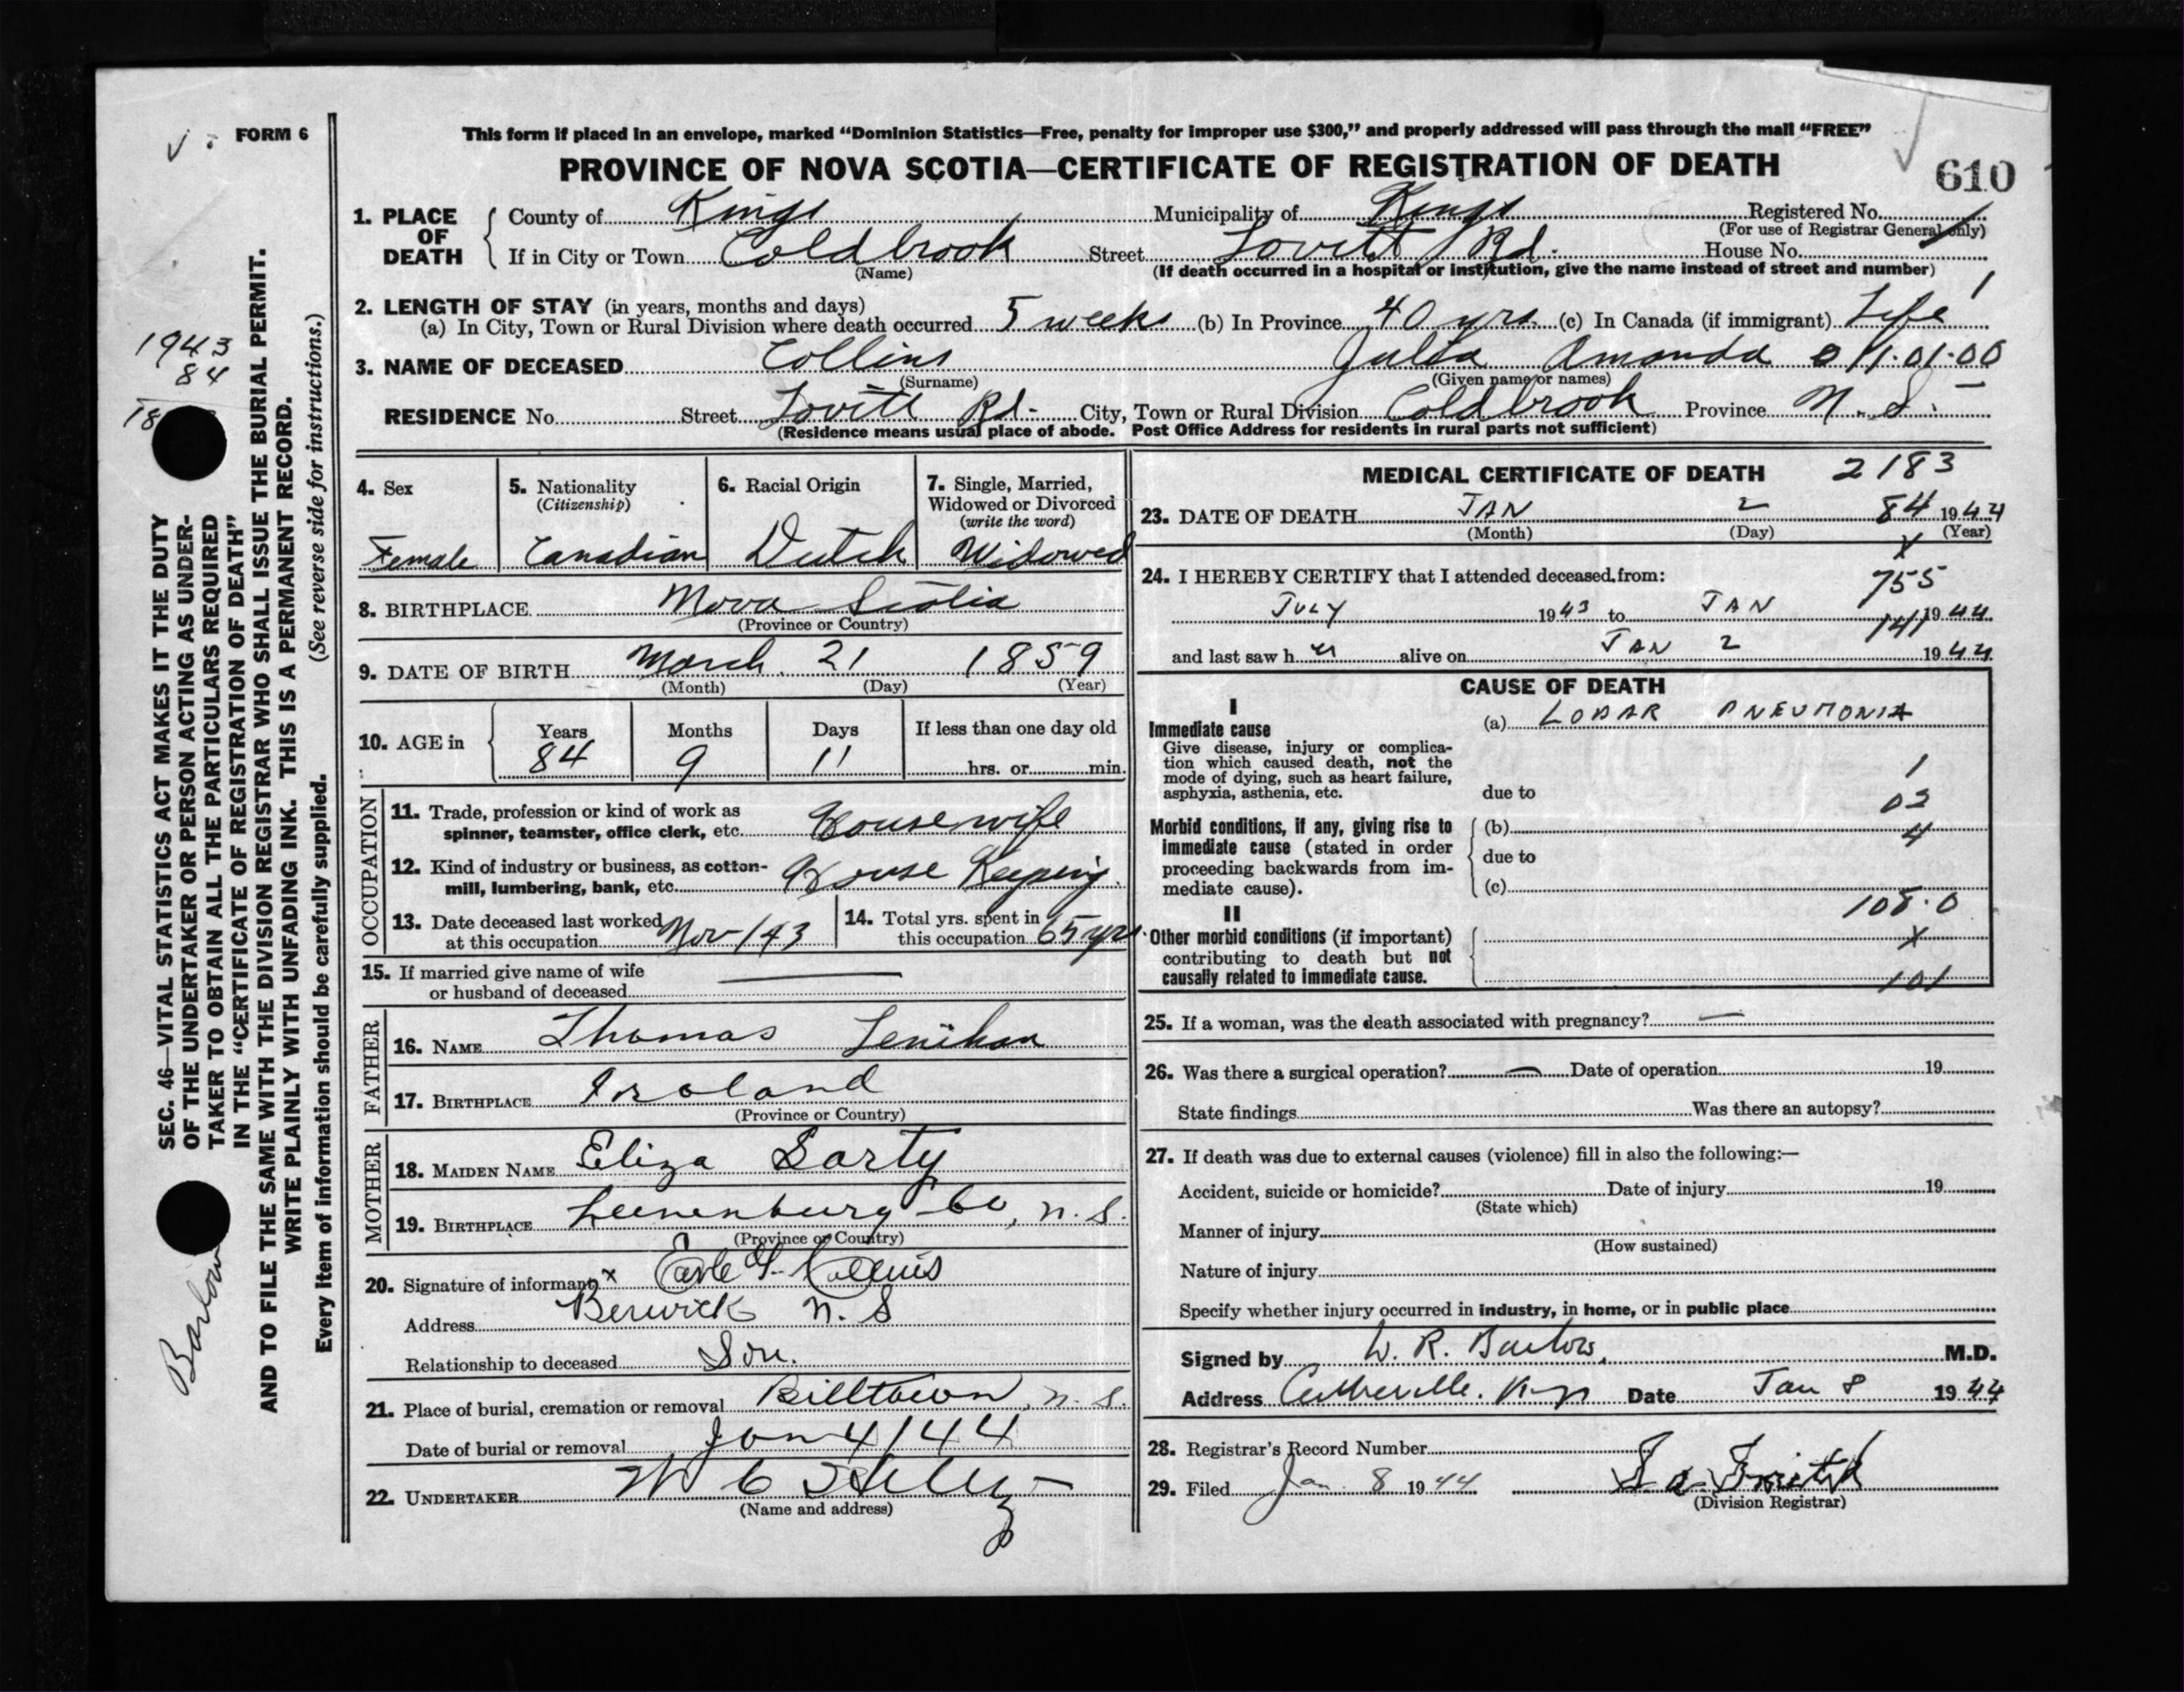 FORM 6
This form if placed in an envelope, marked “Dominion Statistics—Free, penalty for improper use $300,” and properly addressed will pass through the mail “FREE”
PROVINCE OF NOVA SCOTIA—CERTIFICATE OF REGISTRATION OF DEATH
610
1. PLACE OF DEATH
County of Kings Municipality of Kings Registered No.
(For use of Registrar General only)
If in City or Town Coldbrook Street Lovitt Rd. House No.
(Name) (If death occurred in a hospital or institution, give the name instead of street and number)
2. LENGTH OF STAY (in years, months and days)
(a) In City, Town or Rural Division where death occurred 5 weeks (b) In Province 40 yrs. (c) In Canada (if immigrant) Life
3. NAME OF DECEASED Collins Julia Amanda 01.01.00
(Surname) (Given name or names)
RESIDENCE No. Street Lovitt Rd. City, Town or Rural Division Coldbrook Province N.S.
(Residence means usual place of abode. Post Office Address for residents in rural parts not sufficient)
4. Sex
Female
5. Nationality
(Citizenship)
Canadian
6. Racial Origin
Dutch
7. Single, Married, Widowed or Divorced
(write the word)
Widowed
8. BIRTHPLACE Nova Scotia
(Province or Country)
9. DATE OF BIRTH March 21 1859
(Month) (Day) (Year)
10. AGE in
Years Months Days If less than one day old
84 9 11 hrs. or min.
OCCUPATION
11. Trade, profession or kind of work as
spinner, teamster, office clerk, etc. Housewife
12. Kind of industry or business, as cotton-
mill, lumbering, bank, etc. House Keeping.
13. Date deceased last worked
at this occupation Nov/43
14. Total yrs. spent in
this occupation 65 yrs.
15. If married give name of wife
or husband of deceased
FATHER
16. NAME Thomas Lenihan
17. BIRTHPLACE Ireland
(Province or Country)
MOTHER
18. MAIDEN NAME Eliza Sarty
19. BIRTHPLACE Lunenburg Co, N.S.
(Province or Country)
20. Signature of informant x Earle Collins
Address Berwick N.S
Relationship to deceased Son.
21. Place of burial, cremation or removal Billtown, N.S.
Date of burial or removal Jan 4/44
22. UNDERTAKER W C
(Name and address)
MEDICAL CERTIFICATE OF DEATH 2183
23. DATE OF DEATH JAN 2 84 1944
(Month) (Day) (Year)
X
24. I HEREBY CERTIFY that I attended deceased from:
755
JULY 1943 to JAN 1944
141
and last saw her alive on JAN 2 1944
CAUSE OF DEATH
I
Immediate cause
Give disease, injury or complica-
tion which caused death, not the
mode of dying, such as heart failure,
asphyxia, asthenia, etc.
(a) LOBAR PNEUMONIA
1
due to
03
Morbid conditions, if any, giving rise to
immediate cause (stated in order
proceeding backwards from im-
mediate cause).
(b)
4
due to
(c)
108.0
II
Other morbid conditions (if important)
contributing to death but not
causally related to immediate cause.
X
101
25. If a woman, was the death associated with pregnancy? —
26. Was there a surgical operation? — Date of operation 19
State findings Was there an autopsy?
27. If death was due to external causes (violence) fill in also the following:—
Accident, suicide or homicide? Date of injury 19
(State which)
Manner of injury
(How sustained)
Nature of injury
Specify whether injury occurred in industry, in home, or in public place
Signed by W. R. Barlow, M.D.
Address Date Jan 8 1944
28. Registrar's Record Number
29. Filed Jan. 8 1944
(Division Registrar)
SEC. 46—VITAL STATISTICS ACT MAKES IT THE DUTY
OF THE UNDERTAKER OR PERSON ACTING AS UNDER-
TAKER TO OBTAIN ALL THE PARTICULARS REQUIRED
IN THE “CERTIFICATE OF REGISTRATION OF DEATH”
AND TO FILE THE SAME WITH THE DIVISION REGISTRAR WHO SHALL ISSUE THE BURIAL PERMIT.
WRITE PLAINLY WITH UNFADING INK. THIS IS A PERMANENT RECORD.
Every item of information should be carefully supplied. (See reverse side for instructions.)
1943
84
18
Barlow